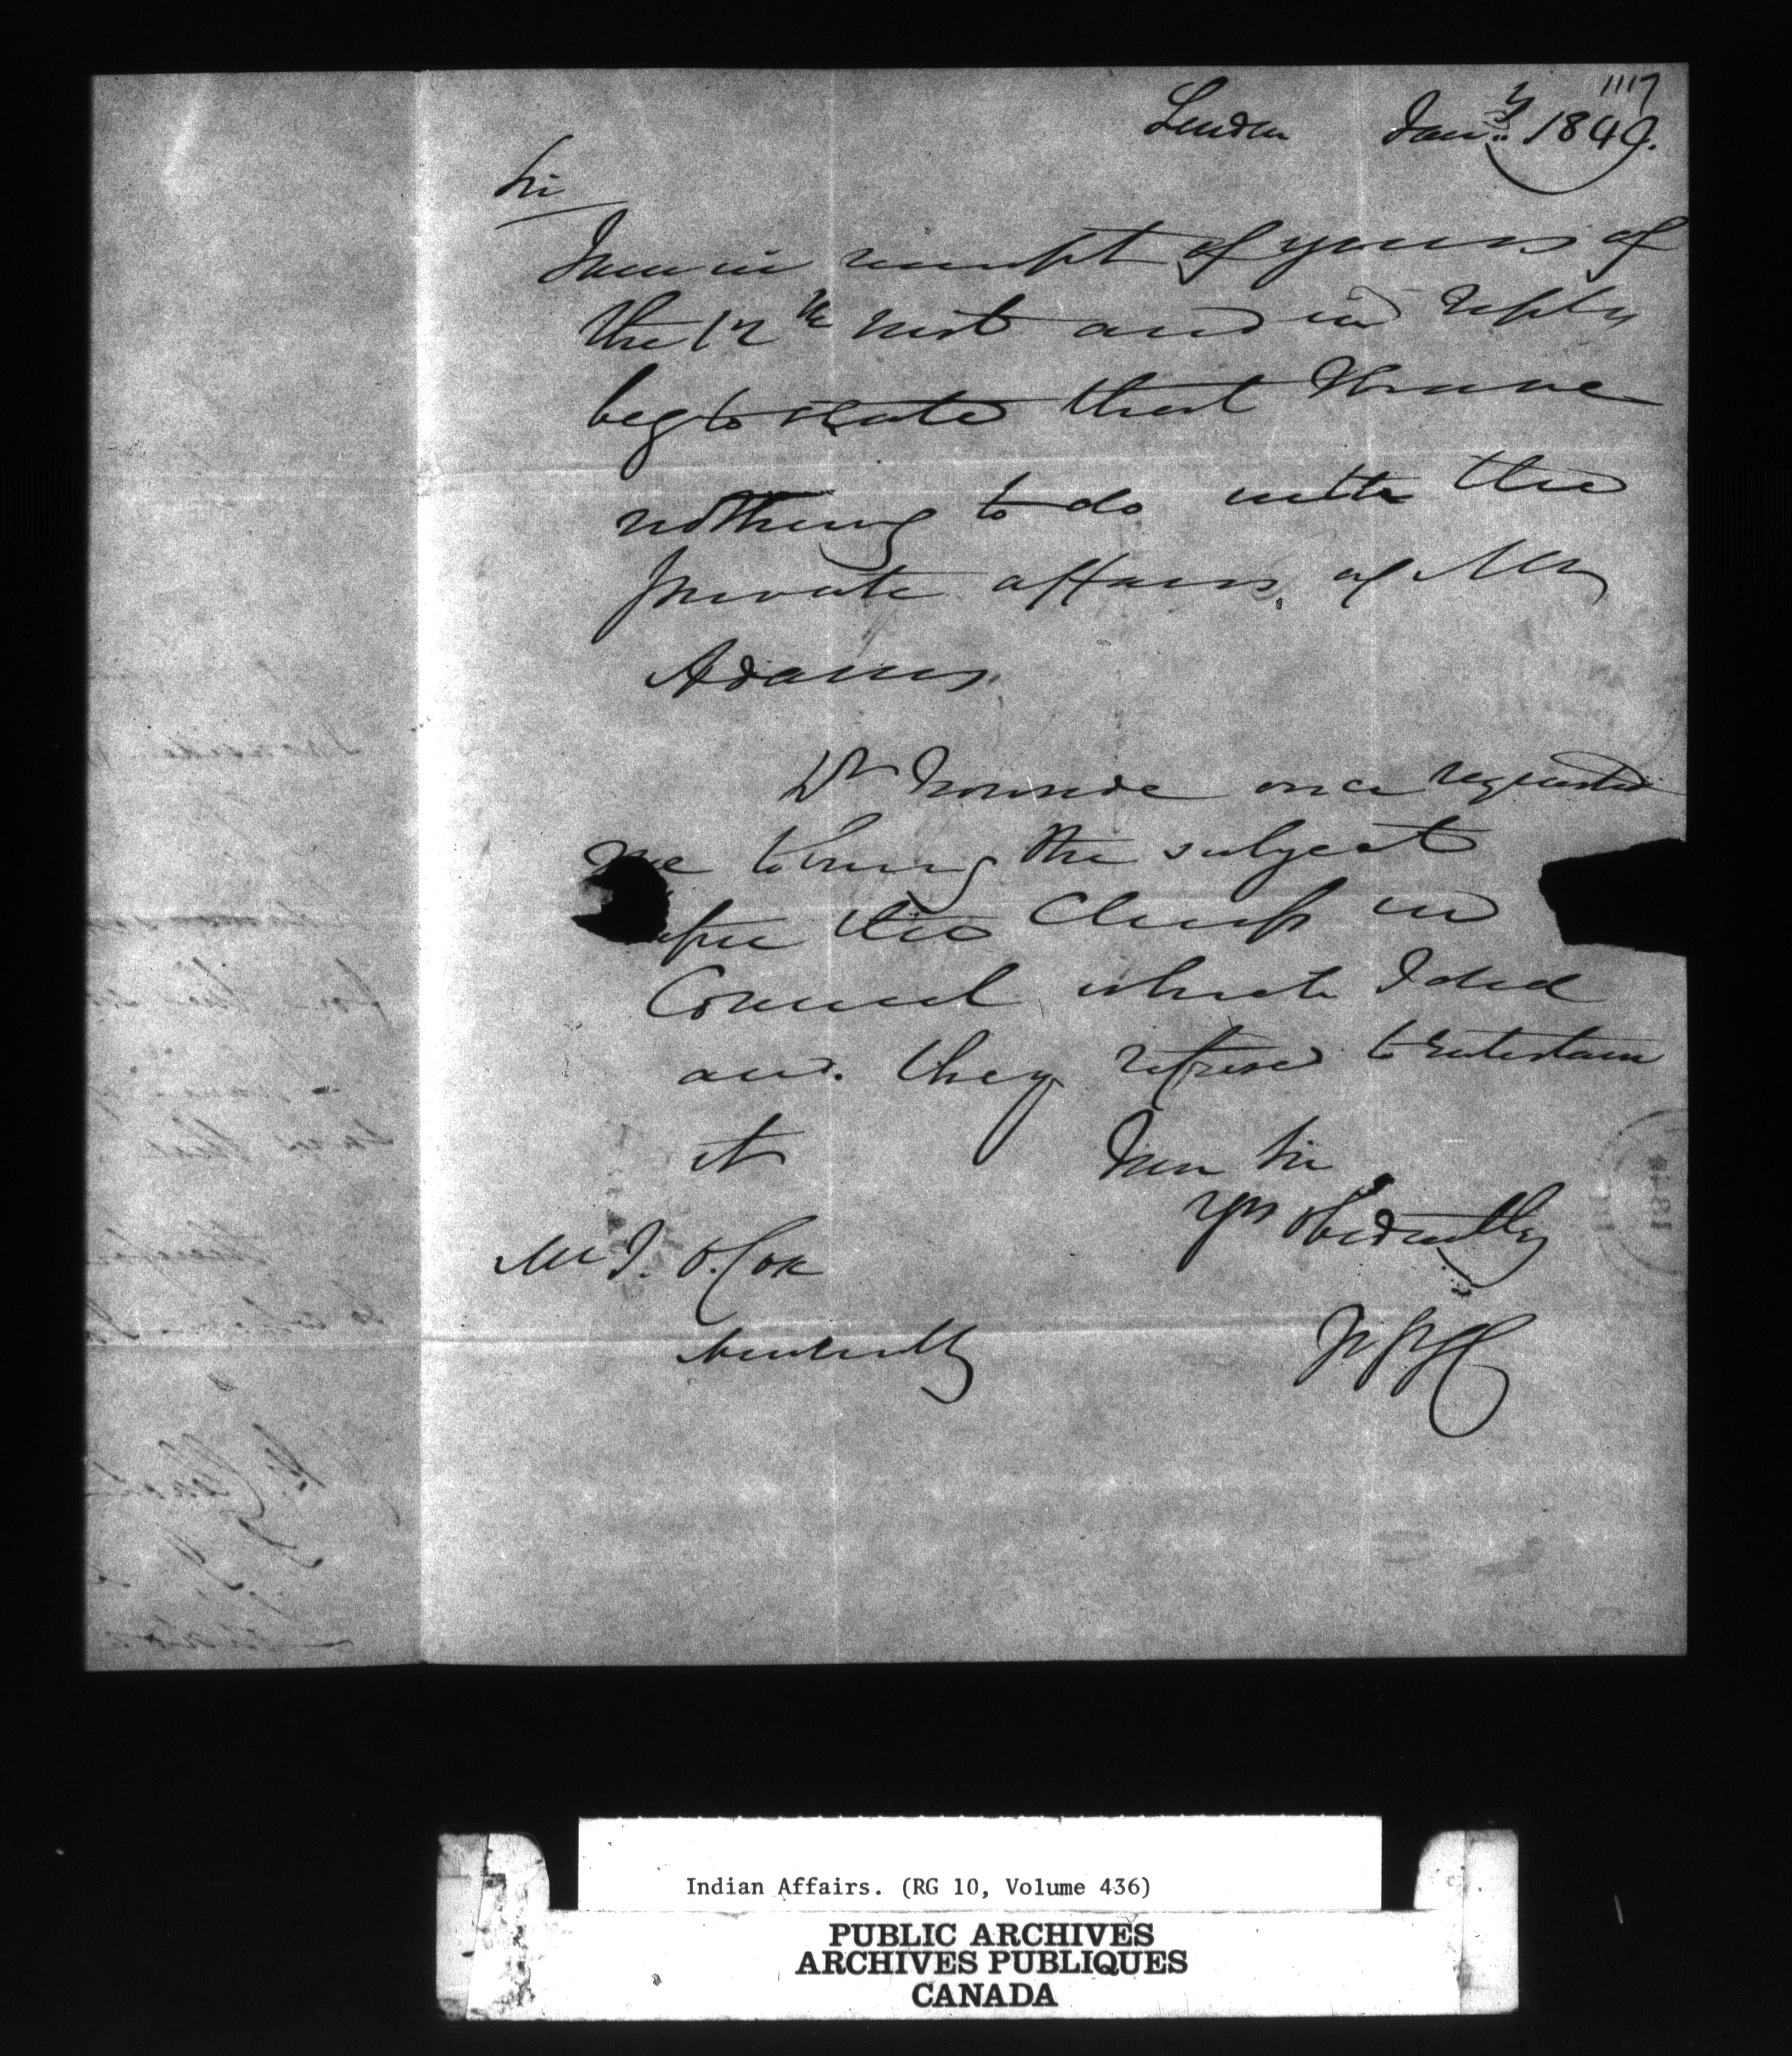 1117
London Jany 1849.
Sir
I am in receipt of yours of
the 12th inst and in reply
beg to state that I have
nothing to do with the
private affairs of Mr
Adams
Dr once requested
me to bring the subject
before the Chiefs in
Council which I did
and they refused to entertain
it I am Sir
Yrs Obediently
Mr J. O. Cox
Indian Affairs. (RG 10, Volume 436)
PUBLIC ARCHIVES
ARCHIVES PUBLIQUES
CANADA